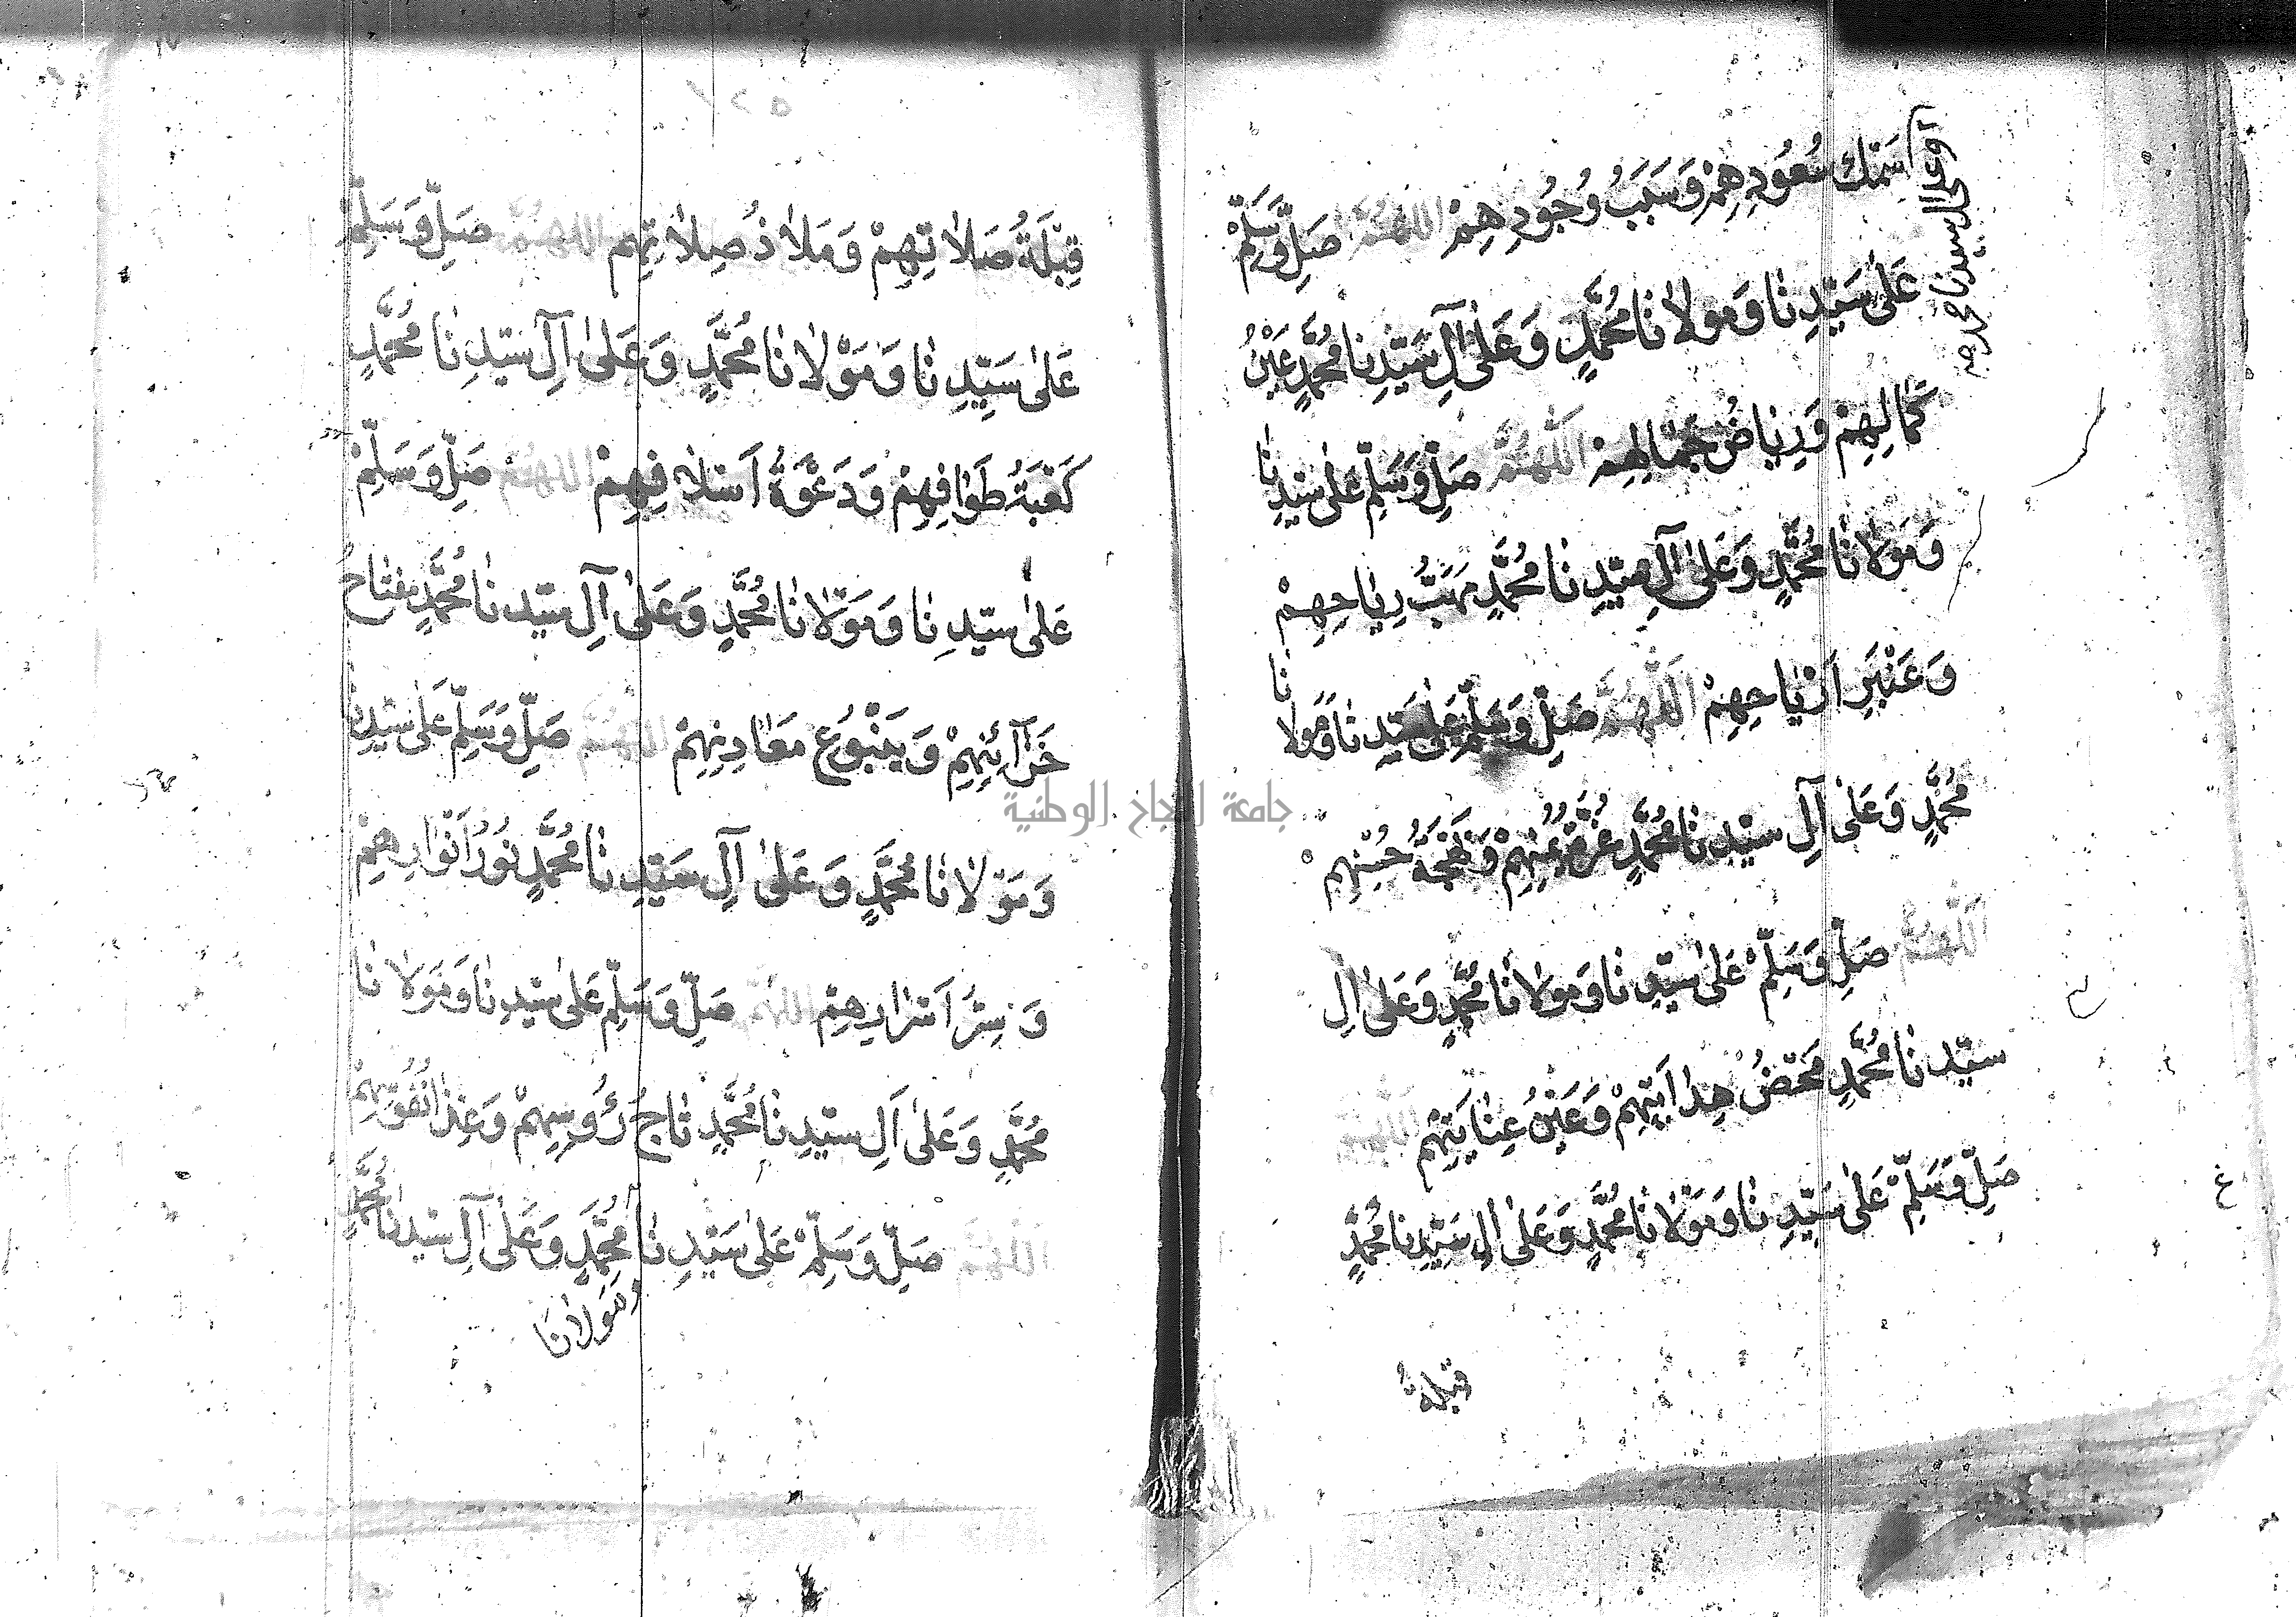 سَمْك سُعُودِهِمْ وَسَبَبُ وُجُودِهِمْ اللهُمَّ صَلِّ وَسَلِّمْ
وعلى ال سيدنا محمد صح
عَلىٰ سَيّدِنٰا وَمَولاٰنَا مُحَمَّدٍ وَعَلىٰ آلِ سَيّدِنٰا مُحَمَّدٍ عَيْنُ
كَمٰالِهِمْ وَرِيٰاضُ جَمٰالِهِمْ اَللّٰهُمَّ صَلِّ وَسَلِّمْ عَلىٰ سَيّدِنٰا
وَمَوْلاٰنٰا مُحَمَّدٍ وَعَلىٰ آلِ سَيّدِنٰا مُحَمَّدٍ مَهَبُّ رِيٰاحِهِمْ
وَعَنْبَرِ اَرْيٰاحِهِمْ اَللّٰهُمَّ صَلِّ وَسَلِّمْ عَلىٰ سَيّدِنٰا وَمَوْلاٰنٰا
مُحَمَّدٍ وَعَلىٰ آلِ سيّدِنٰا مُحَمَّدٍ حُسْنِهِمْ
اَللّٰهُمَّ صَلِّ وَسَلِّمْ عَلىٰ سَيّدِنٰا وَمَوْلاٰنٰا مُحَمَّدٍ وَعَلىٰ الِ
سيّدِنٰا مُحَمَّدٍ مَحْضُ هِدٰايَتِهِمْ وَعَيْنُ عِنٰايَتِهِمْ اَللّٰهُمَّ
صَلِّ وَسَلِّمْ عَلىٰ سَيِّدِنٰا وَمَوْلاٰنٰا مُحَمَّدٍ وَعَلىٰ اٰلِ سَيّدِنٰا مُحَمَّدٍ
قبلة
قِبْلَةُ صَلاٰتِهِمْ وَمَلاٰذُ صِلاٰتِهِم اللهُمَّ صَلِّ وَسَلِّمْ
عَلىٰ سَيِّدِنٰا وَمَوْلاٰنٰا مُحَمَّدٍ وَعَلىٰ آلِ سيّدِنٰا مُحَمَّدٍ
كَعْبَةُ طَوٰافِهِمْ وَدَعْوَةُ اَسْلاٰفِهِمْ اللهُمَّ صَلِّ وَسَلِّمْ
عَلىٰ سيّدِنٰا وَمَوْلاٰنٰا مُحَمَّدٍ وَعَلىٰ آلِ سيّدِنٰا مُحَمَّدٍ مفتٰاحُ
خَزٰآئِنِهِمْ وَيَنْبُوعُ مَعٰادِنِهِمْ اللهُمَّ صَلِّ وَسَلِّمْ عَلىٰ سيّدِنٰا
وَمَوْلاٰنٰا مُحَمَّدٍ وَعَلىٰ آلِ سَيّدِنٰا مُحَمَّدٍ نُورُ اَنْوٰارِهِمْ
وَسِرُّ اَسْرٰارِهِمْ اللهُمَّ صَلِّ وَسَلِّمْ عَلىٰ سيّدِنٰا وَمَوْلاٰنٰا
مُحَمَّدٍ وَعَلىٰ آلِ سيّدِنٰا مُحَمَّدٍ تٰاجُ رُؤُوسِهِمْ وَعِزُّ
اللهُمَّ صَلِّ وَسَلِّمْ عَلىٰ سَيّدِنٰا مُحَمَّدٍ وَعَلىٰ آلِ سيّدِنٰا مُحَمَّدٍ
وَمَوْلاٰنٰا
جامعة النجاح الوطنية